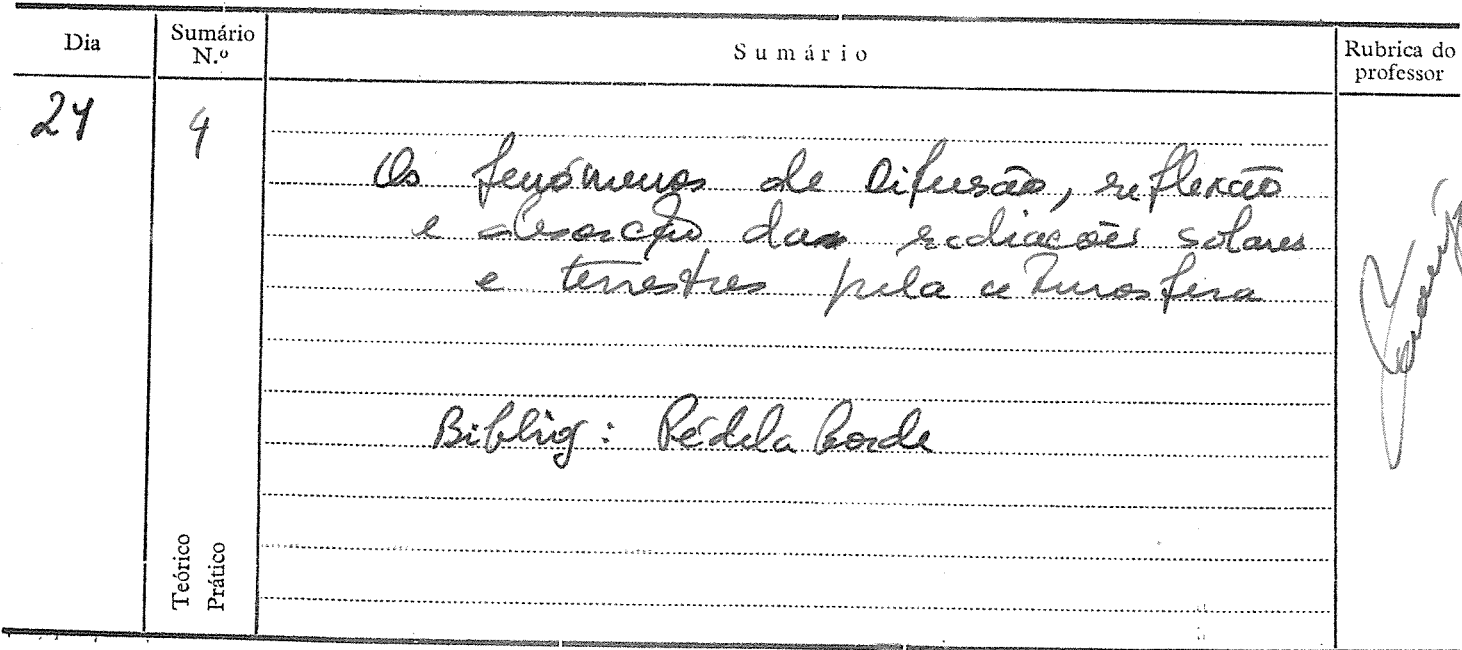 Dia
Sumário N.º
Sumário
Rubrica do professor
24
4
Os fenómenos de Difusão, reflexão
e absorção das radiações solares
e terrestres pela atmosfera
Bibliig: Pédelaborde
Teórico
Prático